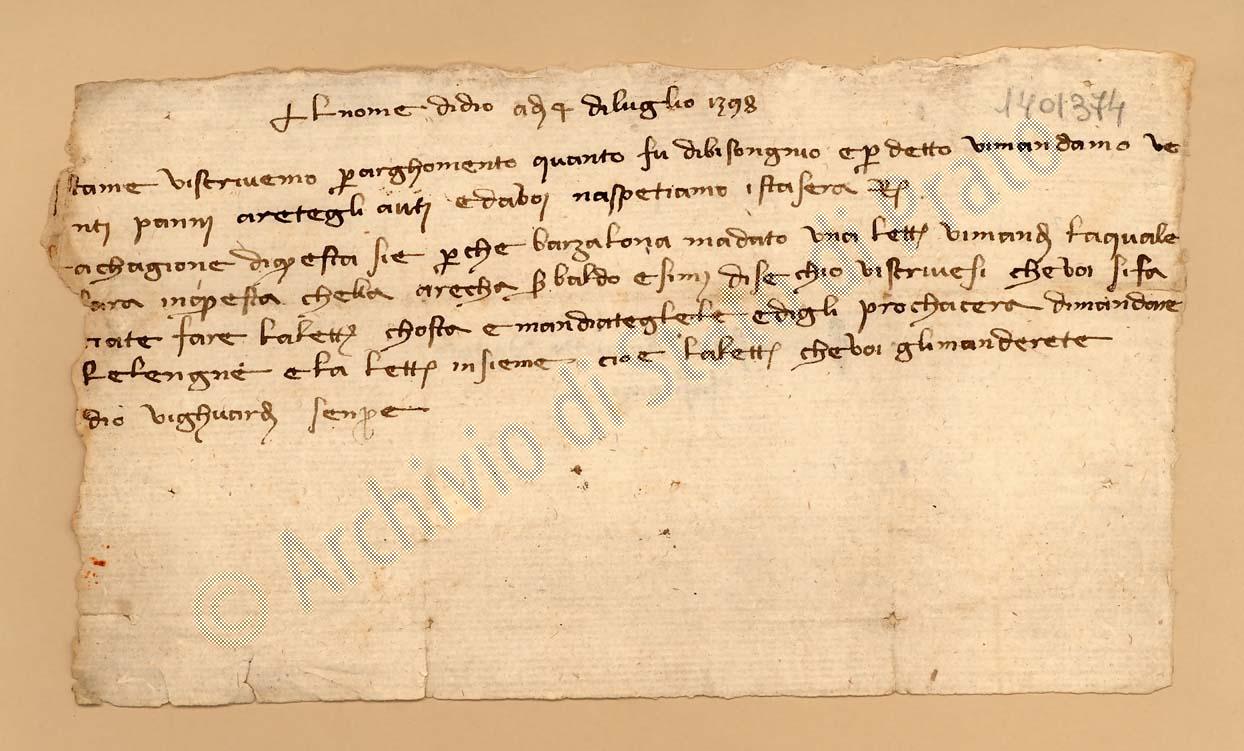 Al nome di dio adì 4 di luglio 1398
1401374
stame vi scrivemo per arghomento quanto fu di bisongnio e per detto vi mandamo ve
nti panni aretegli auti e da voi n'aspetiamo istasera
a chagione di questa sie perche barzalona madato una lett vi mand la quale
sara in questa chella arecha baldo e sim dise ch'io vi scrivesi che voi si fa
ciate fare la lett chosta e mandiateglele ed igli prochacera di mandare
le lengne e la lett insieme cioe la lett che voi gli manderete
dio vi ghuard senpre
© Archivio di Stato di Prato